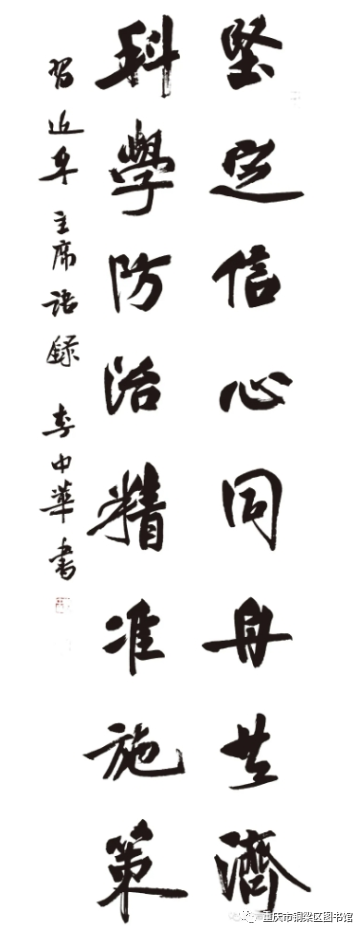 堅定信心同舟共濟
科學防治精准施策
習近平主席語録 李中華書
重庆市铜梁区图书馆